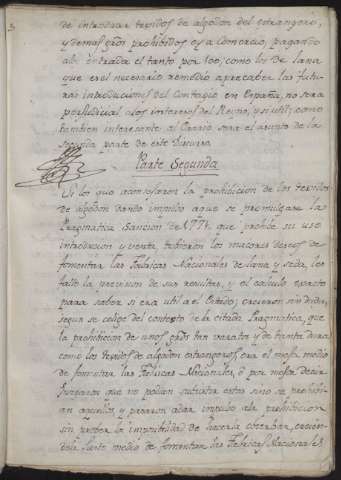 de introducir tegidos de algodon del estrangero,
y demas gros prohibidos oy a Comercio, pagando
ala entrada el tanto por 100, como los de lana
que es el necesario remedio a precaber las futu-
ras introducciones del Contagio en España, no sera
perjudicial alos intereses del Reyno, y si util; como
tambien interesante al Erario sera el asunto de la
segunda parte de este Discurso.
Parte Segunda
Si los que aconsejaron la prohibicion de los tegidos
de algodon dando impulso aque se promulgara la
Pragmatica Sancion de 1771. que prohibe su uso
introducion y venta tubieron los mejores deseos de
fomentar las Fabricas Nacionales de lana y seda, les
falto la precision de sus resultas, y el calculo exacto
para saber si era util a el Estado; creieron sin duda,
segun se colige del contexto de la citada Pragmatica, que
la prohibicion de unos gros tan varatos y de tanta dura
como los tegidos de algodon estrangeros, era el mejor medio
de fomentar las Fabricas Nacionales, ó por mejor decir
juzgaron que no podian subsistir estas sino se prohibi-
an aquellos, y pasaron adar impulso ala prohibicion
sin probar la imposibilidad de hacerla observar, creien-
dola justo medio de fomentar las Fabricas Nacionales